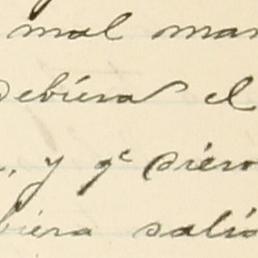 mal man
debiera el
, y qe siem
biera salid